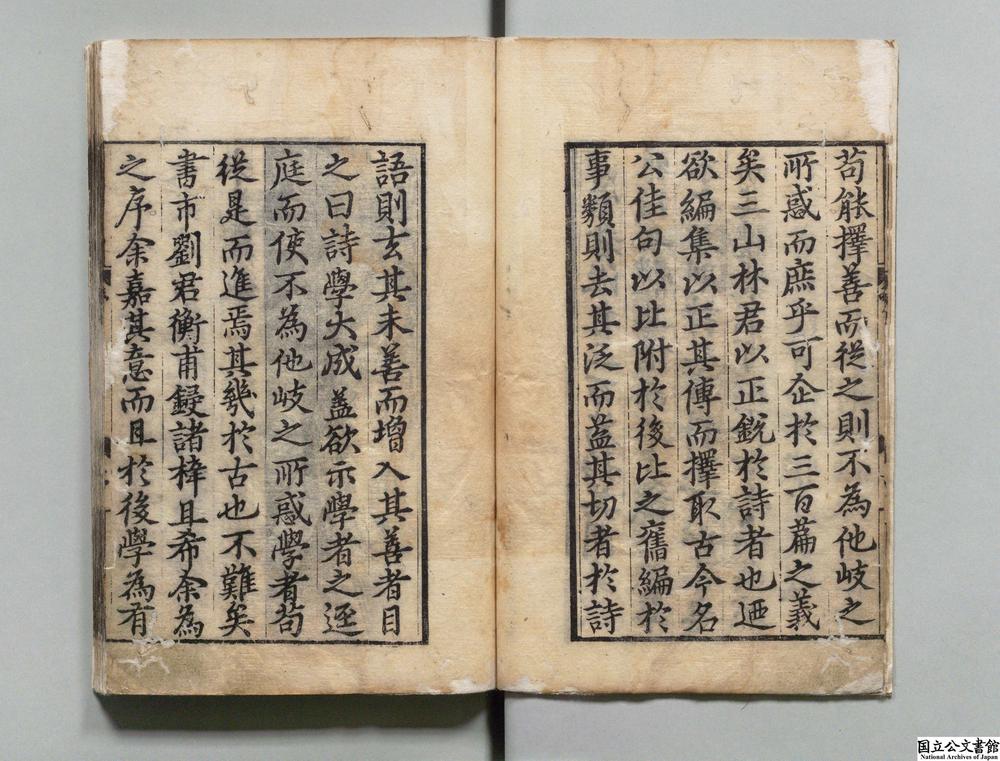 苟能擇善而従之則不為他岐之
所惑而庶乎可企於三百萹之義
矣三山林君以正銳於詩者也廼
欲編集以正其傳而擇取古今名
公佳句以比附於後比之舊編於
事類則去其泛而益其切者於詩
語則去其未善而增入其善者目
之曰詩學大成蓋欲示學者之逕
庭而使不為他岐之所惑學者苟
従是而進焉其㡬於古也不難矣
書市劉君衡甫鋟諸梓且希余為
之序余嘉其意而且於後學為有
国立公文書館
National Archives of Japan